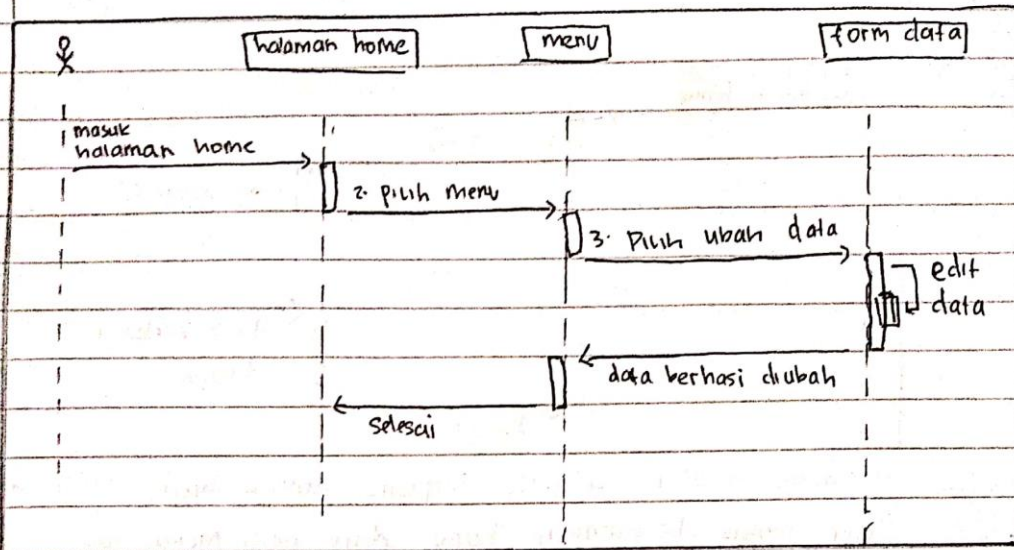 halaman home
menu
form data
masuk
halaman home
2. pilih menu
3. Pilih ubah data
edit
data
data berhasi diubah
selesai